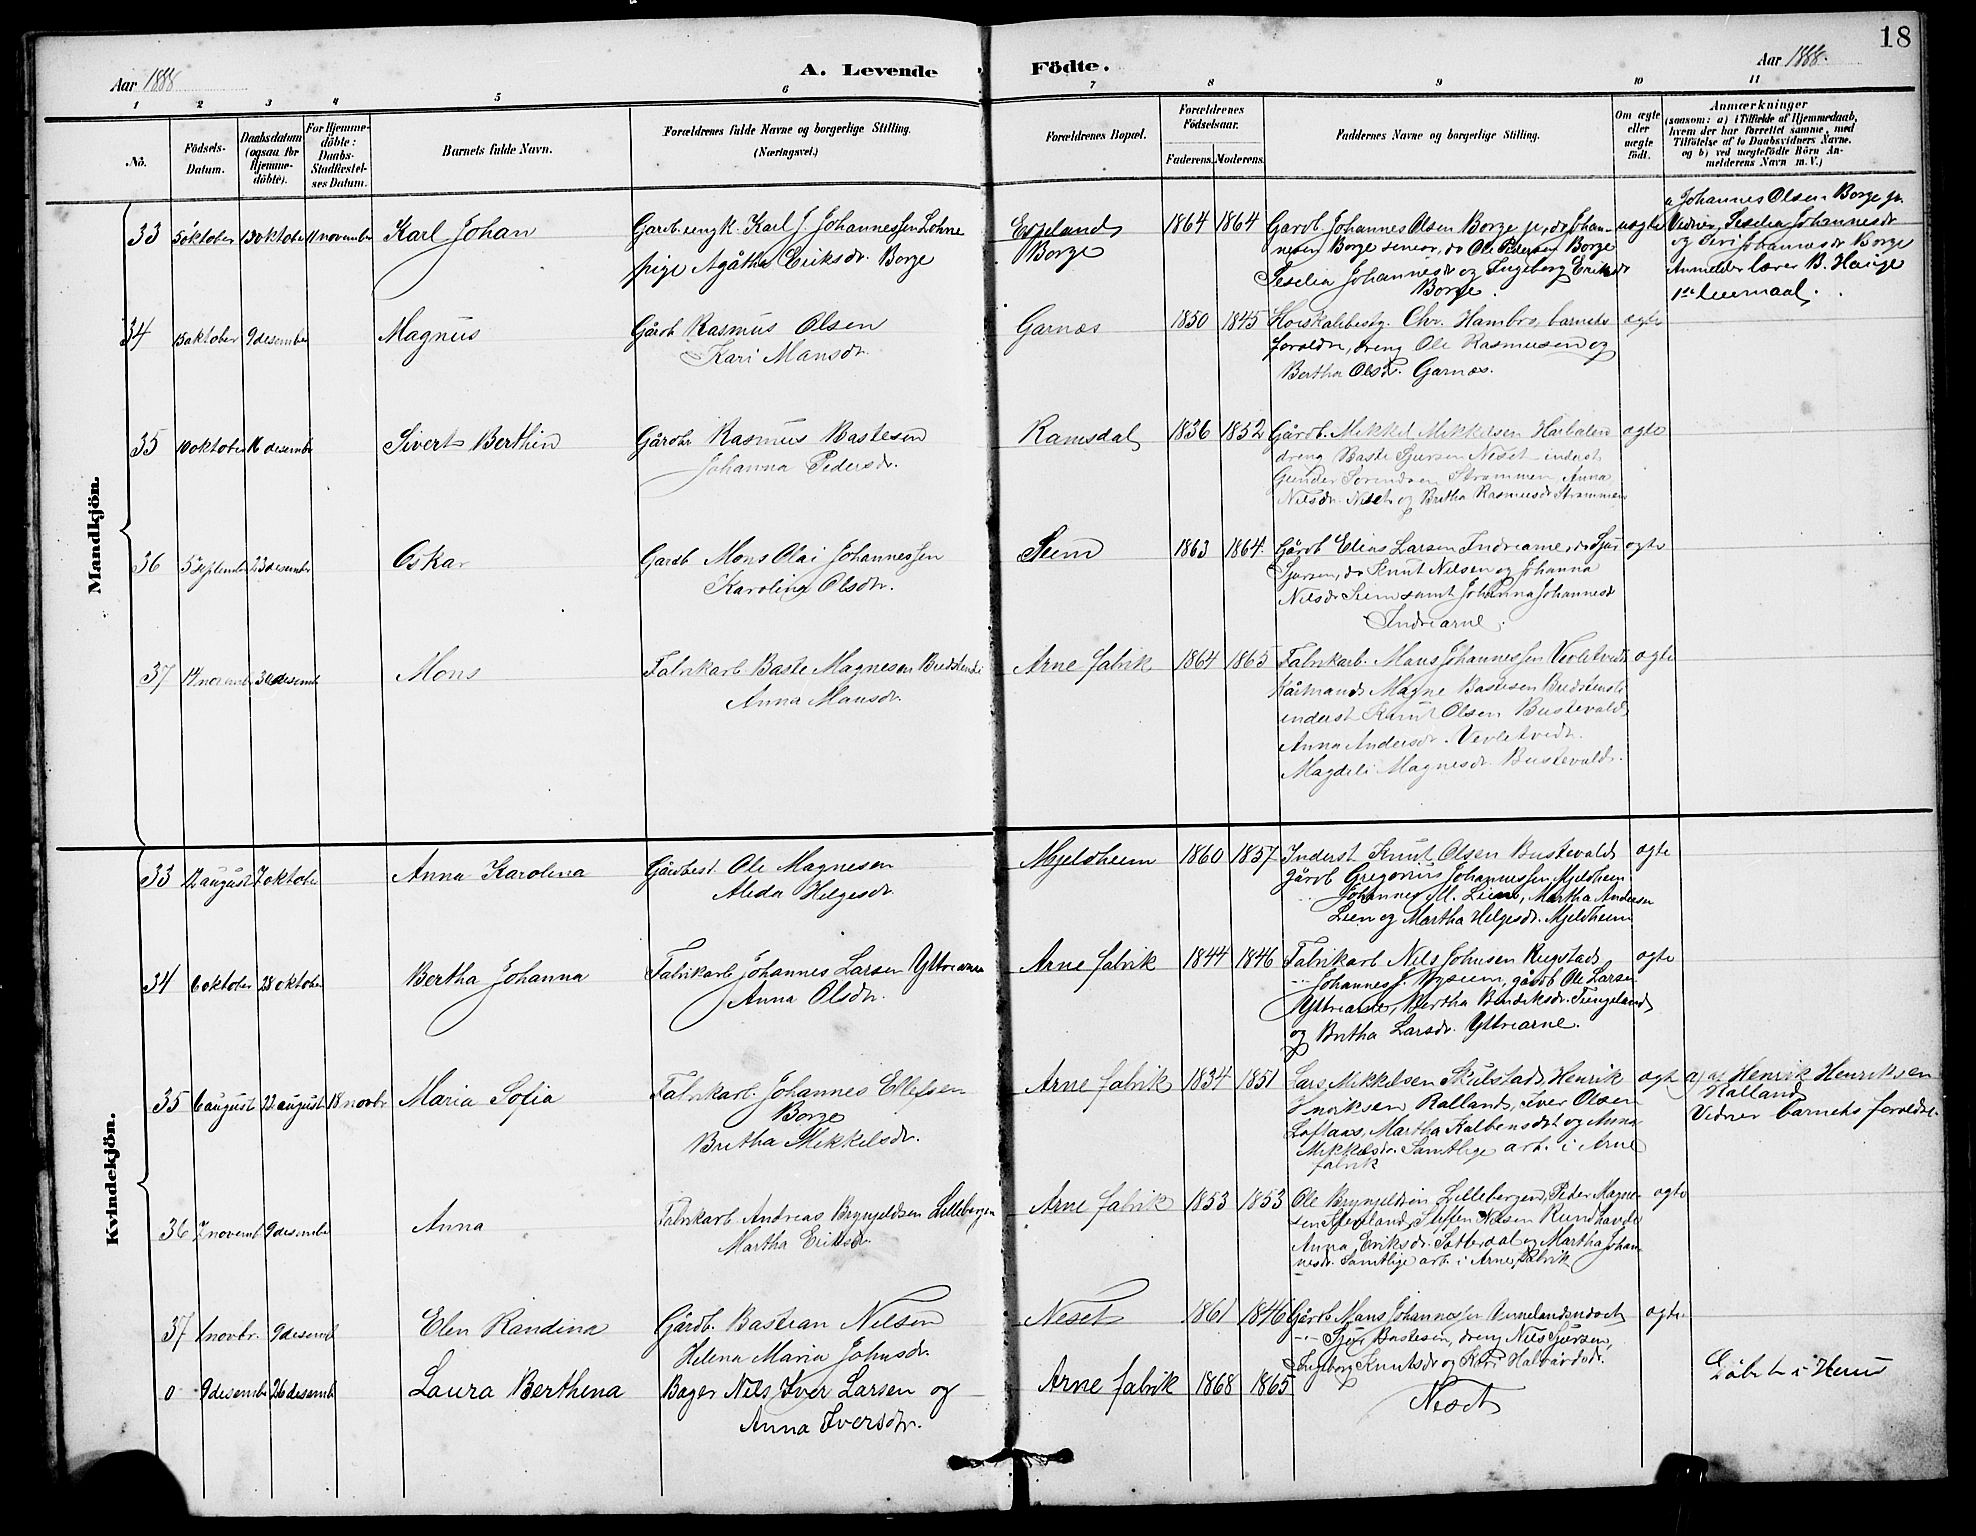 18
Aar 1888 A. Levende Födte. Aar 1888.
1 2 3 4 5 6 7 8 9 10 11
No.
Födsels-Datum.
Daabsdatum (ogsaa for Hjemme-döbte).
For Hjemme-döbte: Daabs-Stadfæstel-ses Datum.
Barnets fulde Navn.
Forældrenes fulde Navne og borgerlige Stilling. (Næringsvei.)
Forældrenes Bopæl.
Forældrenes Födselsaar.
Faderens. Moderens.
Faddernes Navne og borgerlige Stilling.
Om ægte eller uægte födt.
Anmærkninger
(saasom: a) i Tilfælde af Hjemmedaab,
hvem der har forrettet samme, med
Tilföielse af to Daabsvidners Navne.
og b) ved uægtefödte Börn An-
melderens Navn m. V.)
Mandkjön.
33 5 oktober 13 oktober 11 november Karl Johan Gardb. ungk. Karl J. Johannessen Lohne
pige Agåtha Eriksdr. Borge
Espeland Borge 1864 1864
Gardb Johannes Olsen Borge jr., do Johan-
nesen Borge senior, do Ole Pedersen Borge
Seselia Johannesdr og Ingeborg Eriksdr
Borge.
uægte
a Johannes Olsen Borge jr.
Vidner, Seselia Johannesdr
og Siri Johannesdr Borge
Anmelder lærer B. Hauge
1ste leiermaal.
34 15 oktober 9 desember Magnus Gårdb Rasmus Olsen
Kari Mansdr.
Garnæs 1850 1845
Chr. Hambro, barnets
foreldre, dreng Ole Rasmusen og
Bertha Olsdr. Garnæs.
ægte
35 10 oktober 16 desember Sivert Berthin Gårdbr Rasmus Bastesen
Johanna Pedersdr.
Ramsdal 1836 1852
Gårdb. Mikkel Mikkelsen
dreng Baste Sjursen Neset inderst
Gunder Sorendsen Strømmen Anna
Nilsdr. Neset og Britha Rasmusdr Strømmen
ægte
36 5 september 23 desember Oskar Gardb Mons Olai Johannessen
Karolina Olsdr.
Seim 1863 1864.
Gårdb Elias Larsen Indrearne, do Sjur
Sjursen, do Knut Nilsen og Johanna
Nilsdr Seim samt Johanna Johannesdr
Indrearne.
ægte
37 14 novembr desemb Mons Fabrikarb. Baste Magnesen
Anna Mansdr.
Arne fabrik 1864 1865
Fabrikarb. Mons Johannessen
Magne Bastesen
inderst Knut Olsen Bustevold,
Anna Andersdr.
Magdeli Magnesdr. Bustevold.
ægte
Kvindekjön.
33 12 august 7 oktober Anna Karolina Gårdbest. Ole Magnesen
Alida Helgesdr.
Mjeldheim 1860 1857
Inderst Knut Olsen Bustevold,
gårdb Gregorius Johannessen Mjeldheim
Johannes M. Leien, Martha Andersen
Leien og Martha Helgesdr. Mjeldheim
ægte
34 6 oktober 28 oktober Bertha Johanna Fabrikarb Johannes Larsen Yttrearne
Anna Olsdr.
Arne fabrik 1844 1846
Fabrikarb Nils Johnsen
Johannes J. gårdb Ole Larsen
Yttrearne, Bertha
og Britha Larsdr. Yttrearne.
ægte
35 6 august 22 august 18 novbr Maria Sofia Fabrikarb. Johannes Ellefsen
Borge
Britha Mikkelsdr.
Arne fabrik 1834 1851
Lars Mikkelsen Skulstad, Henrik
Henriksen Kalland, Iver Olsen
Loftaas, Martha og Anna
Mikkelsdr. Samtlige arb. i Arne
fabrik
ægte
a) af Henrik Henriksen
Kalland
Vidner barnets foreldre.
36 7 novemb 9 desember Anna Fabrikarb Andreas Brynjeldsen Lillebergen
Martha Eriksdr.
Arne fabrik 1853 1853
Ole Brynjeldsen Lillebergen, Peder Magne-
sen Steffen Nilsen Rundhovde
Anna Eriksdr. og Martha Johan-
nesdr. Samtlige arb. i Arne fabrik
ægte
37 1 novbr. 9 desemb Elen Randina Gårdb. Bastian Nilsen
Helena Maria Johnsdr.
Neset 1861 1846
Gårdb Mons Johannessen
Sjur Bastesen, dreng Nils Sjursen,
Ingborg Knutsdr og Kari Halvårdsdr.
Neset
ægte
0 9 desemb 26 desemb Laura Berthina Bager Nils Iver Larsen og
Anna Iversdtr.
Arne fabrik 1868 1865
Döbt i Haus